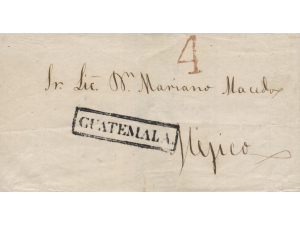 4
Sr. Lic. Dn. Mariano Macedo
GUATEMALA.
Mejico